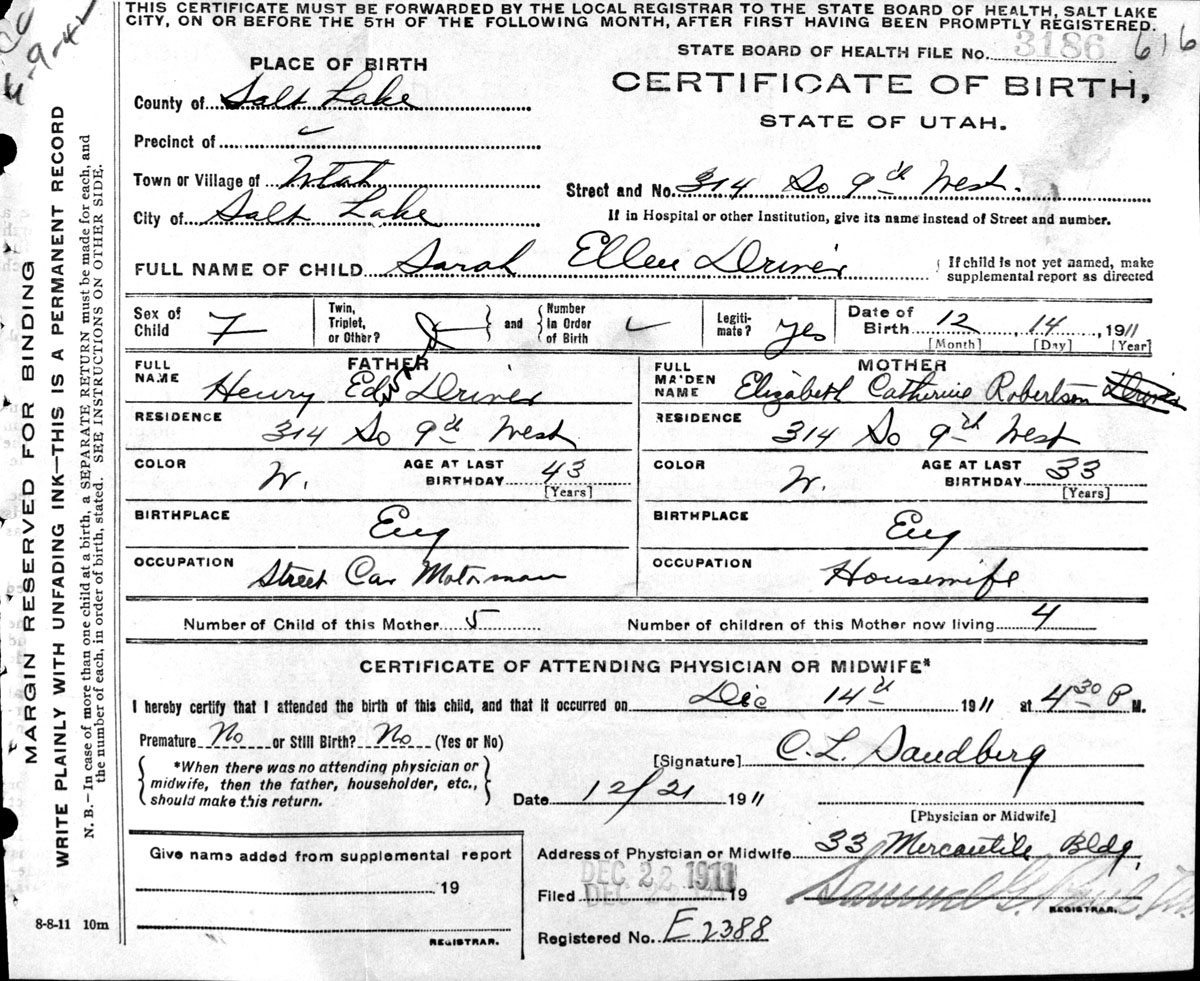 THIS CERTIFICATE MUST BE FORWARDED BY THE LOCAL REGISTRAR TO THE STATE BOARD OF HEALTH, SALT LAKE
CITY, ON OR BEFORE THE 5TH OF THE FOLLOWING MONTH, AFTER FIRST HAVING BEEN PROMPTLY REGISTERED.
STATE BOARD OF HEALTH FILE No. 3186 616
4-9-42
MARGIN RESERVED FOR BINDING
WRITE PLAINLY WITH UNFADING INK—THIS IS A PERMANENT RECORD
N. B.—In case of more than one child at a birth, a SEPARATE RETURN must be made for each, and
the number of each, in order of birth, stated. SEE INSTRUCTIONS ON OTHER SIDE.
PLACE OF BIRTH
CERTIFICATE OF BIRTH,
STATE OF UTAH.
County of Salt Lake
Precinct of
Town or Village of Utah
Street and No. 314 So 9th West.
City of Salt Lake
If in Hospital or other Institution, give its name instead of Street and number.
FULL NAME OF CHILD Sarah Ellen Driver
{ If child is not yet named, make
supplemental report as directed
Sex of Child F
Twin, Triplet, or Other? } and { Number in Order of Birth
Legiti-mate? yes
Date of Birth 12, 14, 1911
[Month] [Day] [Year]
FATHER
FULL NAME Henry Edw Driver
RESIDENCE 314 So 9th West
COLOR W. AGE AT LAST BIRTHDAY 43
[Years]
BIRTHPLACE Eng
OCCUPATION Street Car Motorman
MOTHER
FULL MAIDEN NAME Elizabeth Catherine Robertson Driver
RESIDENCE 314 So 9th West
COLOR W. AGE AT LAST BIRTHDAY 33
[Years]
BIRTHPLACE Eng
OCCUPATION Housewife
Number of Child of this Mother 5 Number of children of this Mother now living 4
CERTIFICATE OF ATTENDING PHYSICIAN OR MIDWIFE*
I hereby certify that I attended the birth of this child, and that it occurred on Dec 14th 1911 at 4 30 P M.
Premature No or Still Birth? No (Yes or No)
[Signature] C. L. Sandberg
{ *When there was no attending physician or
midwife, then the father, householder, etc.,
should make this return. }
Date 12/21 1911
[Physician or Midwife]
Give name added from supplemental report
19
REGISTRAR.
8-8-11 10m
Address of Physician or Midwife 33 Mercantile Bldg,
Filed DEC 22 1911 19
Samuel G. Paul
REGISTRAR.
Registered No. E 2388